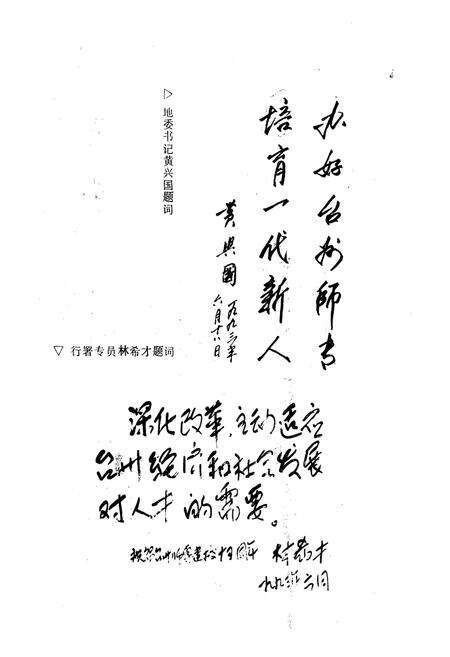 办好台州師专
培育一代新人
黄興國
一九九三年
六月十八日
▷ 地委书记黄兴国题词
▽ 行署专员林希才题词
深化改革,主动适应
台州经济和社会发展
对人才的需要。
祝贺台州师专建校15周年 林希才
一九九三年六月